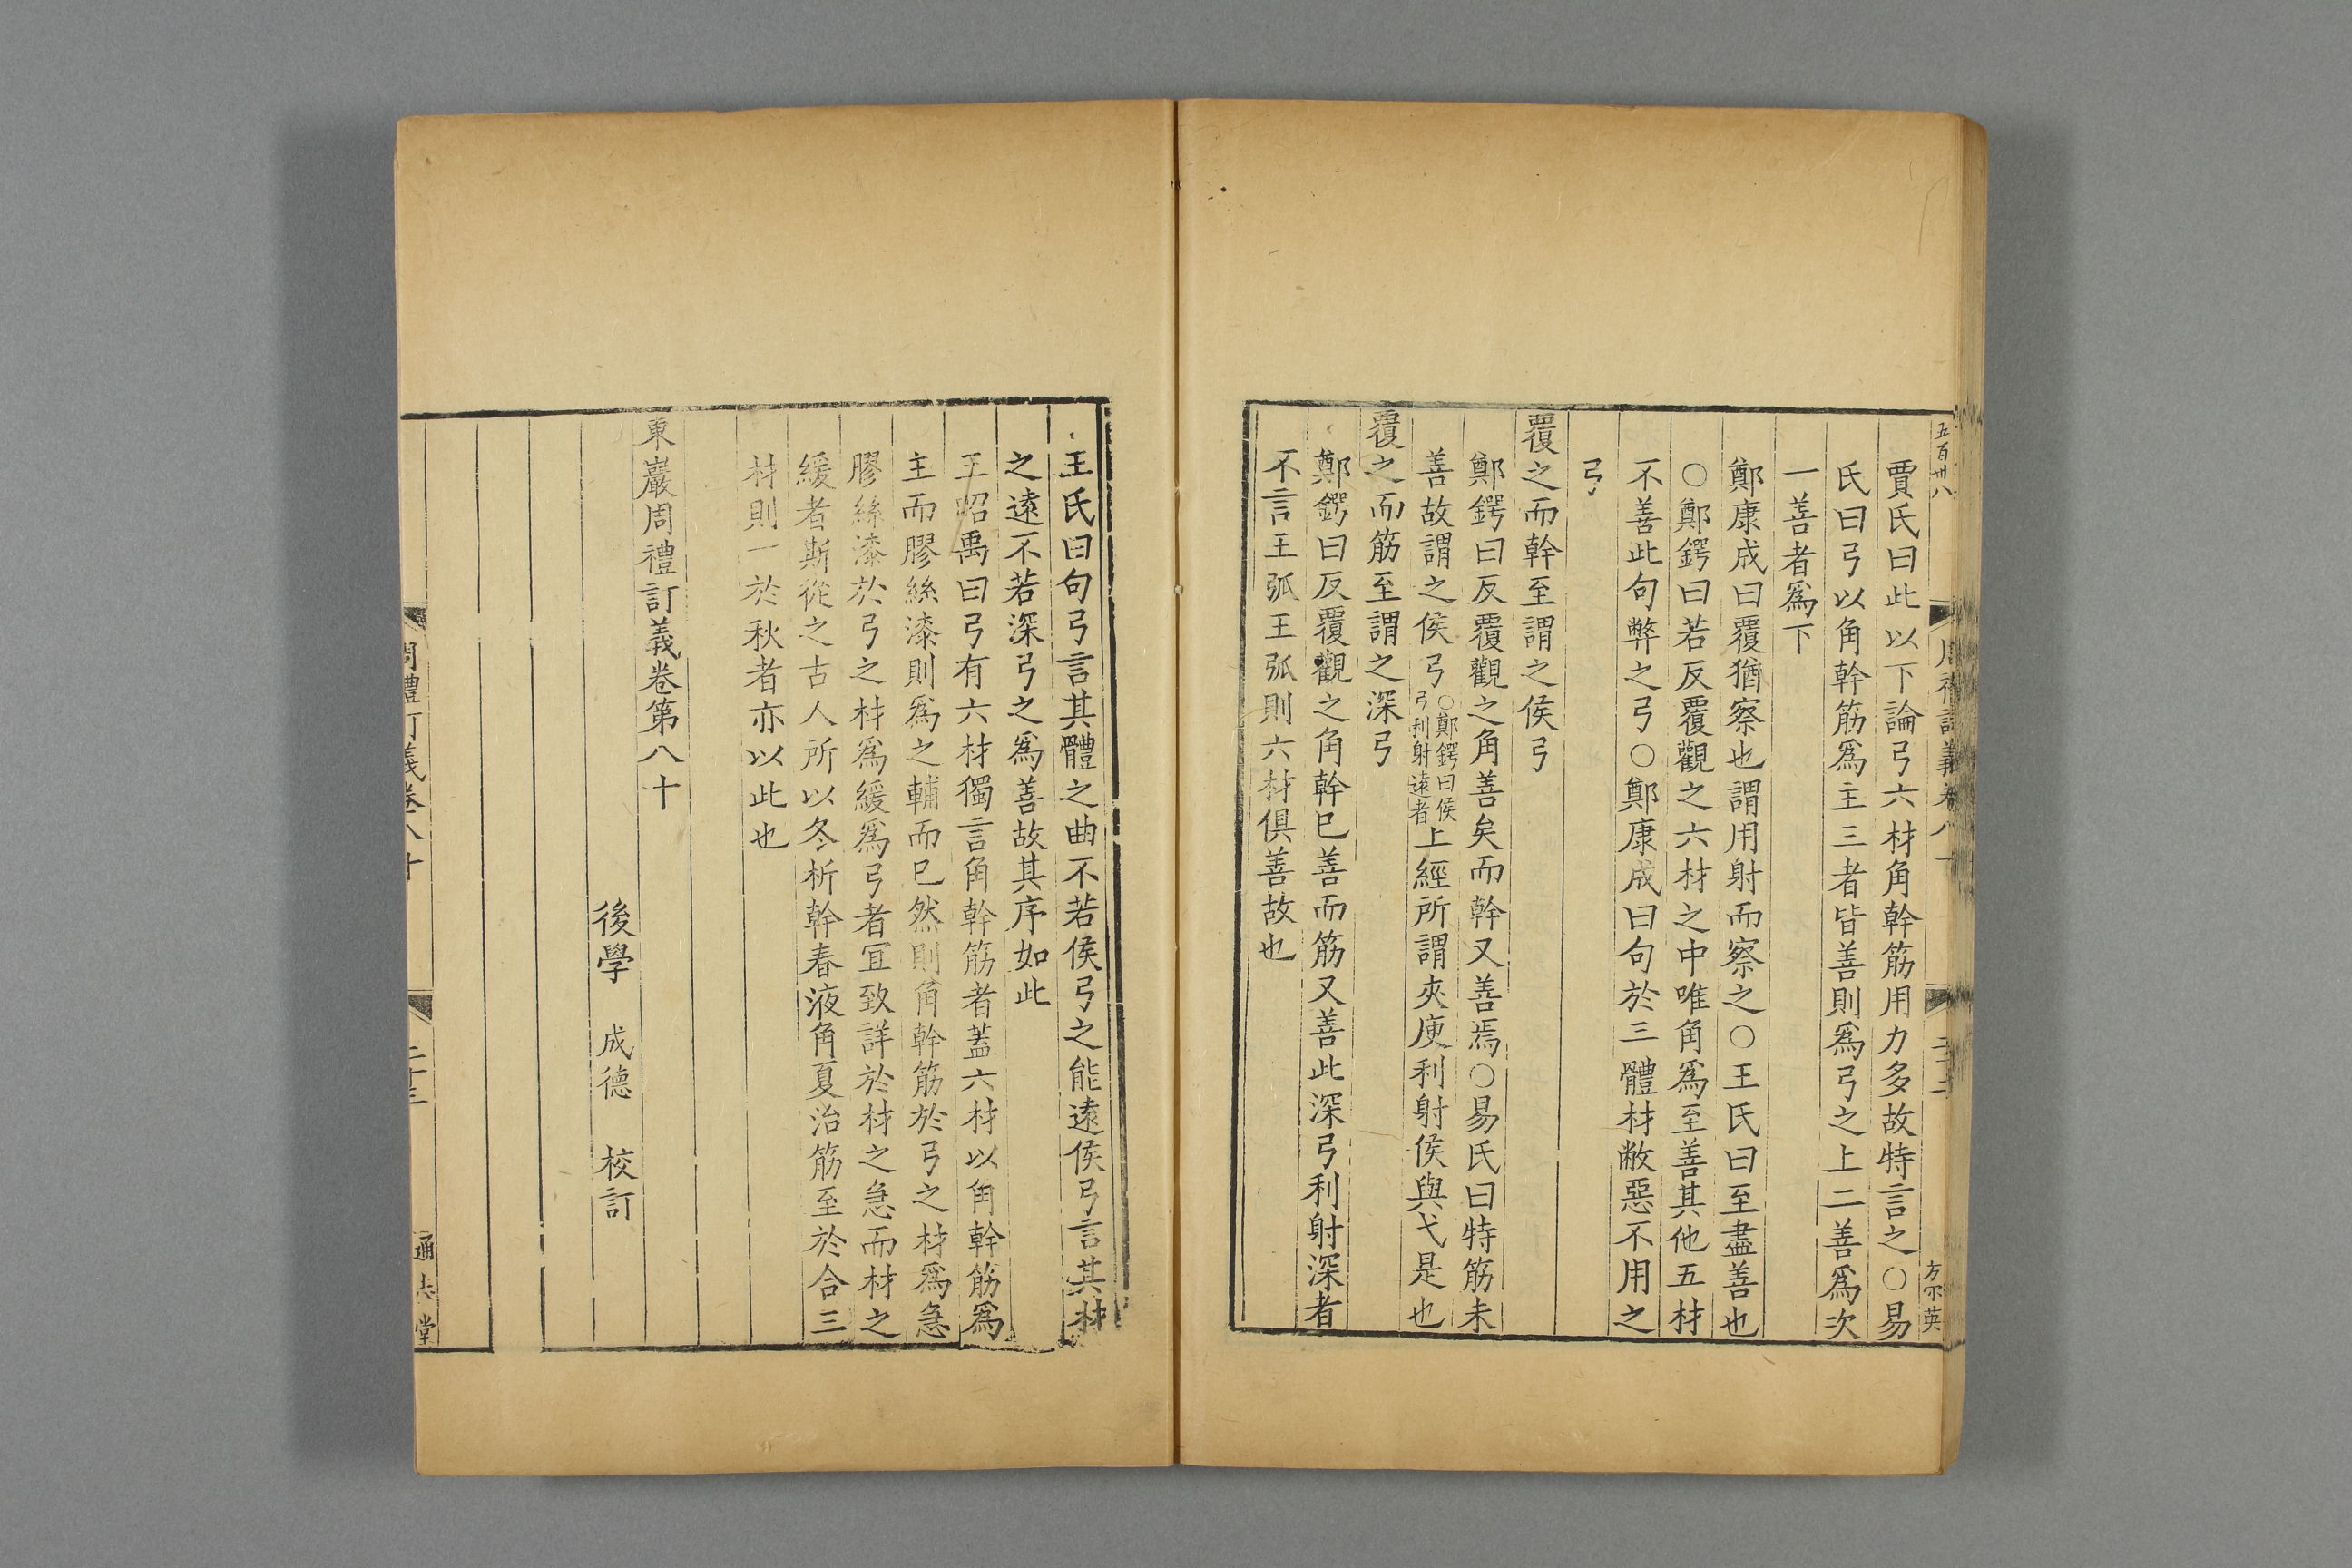 五百卅八
賈氏曰此以下論弓六材角幹筋用力多故特言之○易
氏曰弓以角幹筋爲主三者皆善則爲弓之上二善爲次
一善者爲下
鄭康成曰覆猶察也謂用射而察之○王氏曰至盡善也
○鄭鍔曰若反覆觀之六材之中唯角爲至善其他五材
不善此句弊之弓○鄭康成曰句於三體材敝惡不用之
弓
覆之而幹至謂之侯弓
鄭鍔曰反覆觀之角善矣而幹又善焉○易氏曰特筋未
善故謂之侯弓○鄭鍔曰侯弓利射遠者上經所謂夾庾利射侯與弋是也
覆之而筋至謂之深弓
鄭鍔曰反覆觀之角幹巳善而筋又善此深弓利射深者
不言王弧王弧則六材俱善故也
王氏曰句弓言其體之曲不若侯弓之能遠侯弓言其材
之遠不若深弓之爲善故其序如此
王昭禹曰弓有六材獨言角幹筋者蓋六材以角幹筋爲
主而膠絲漆則爲之輔而巳然則角幹筋於弓之材爲急
膠絲漆於弓之材爲緩爲弓者宜致詳於材之急而材之
緩者斯從之古人所以冬析幹春液角夏治筋至於合三
材則一於秋者亦以此也
東巖周禮訂義卷第八十
後學 成德 校訂
周禮訂義卷八十
二十三
通志堂